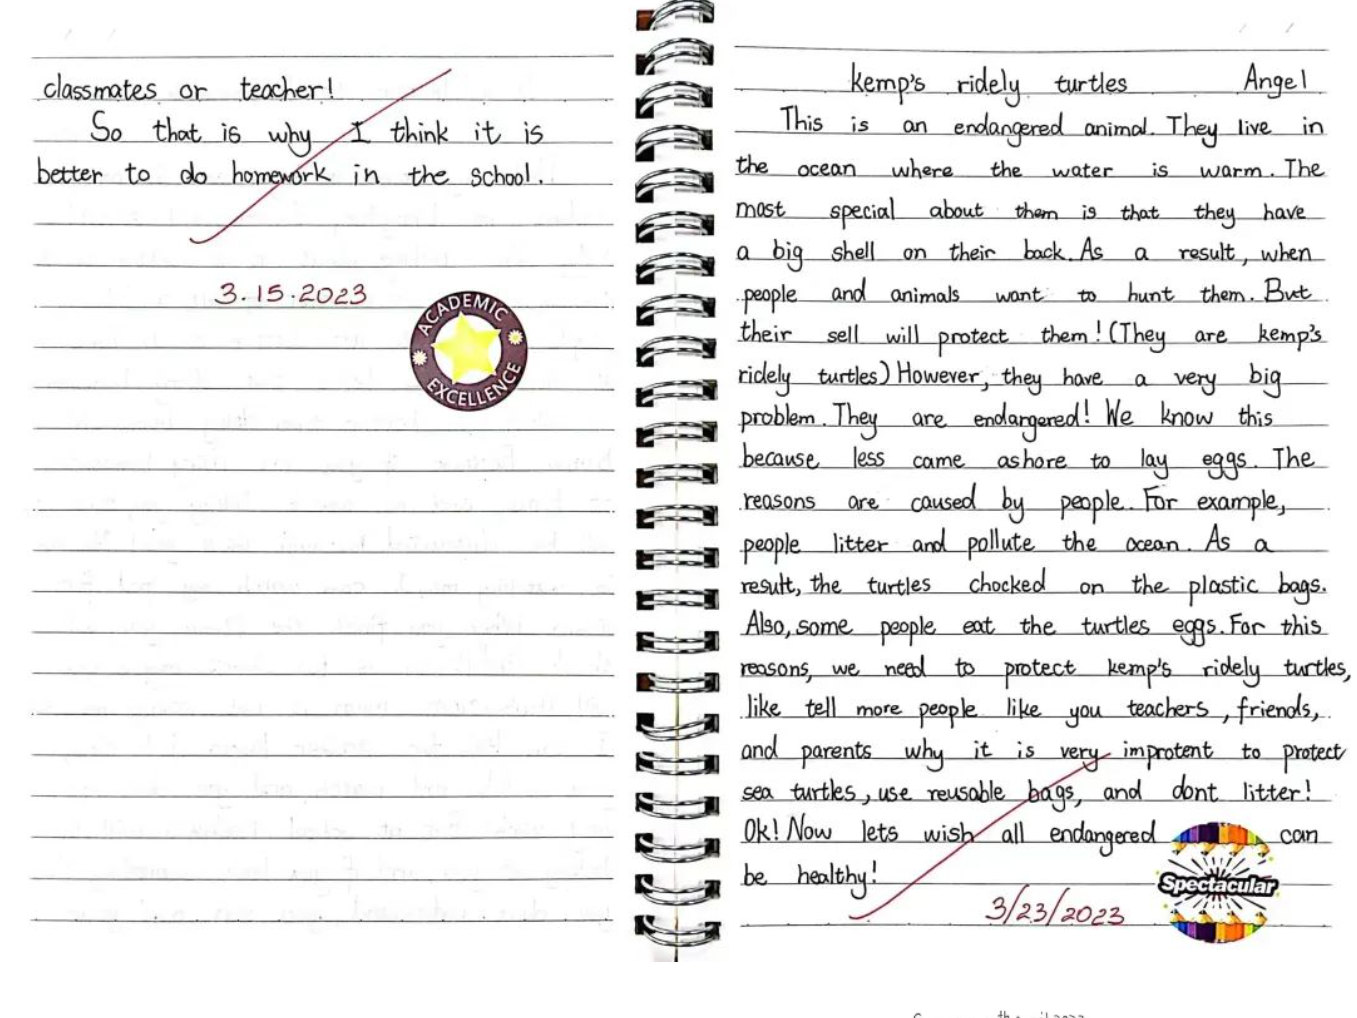 classmates or teacher!
So that is why I think it is
better to do homework in the school.
3.15.2023
ACADEMIC
EXCELLENCE
kemp's ridely turtles Angel
This is an endangered animal. They live in
the ocean where the water is warm. The
most special about them is that they have
a big shell on their back. As a result, when
people and animals want to hunt them. But
their sell will protect them! (They are kemp's
ridely turtles) However, they have a very big
problem. They are endangered! We know this
because less came ashore to lay eggs. The
reasons are caused by people. For example,
people litter and pollute the ocean. As a
result, the turtles chocked on the plastic bags.
Also, some people eat the turtles eggs. For this
reasons, we need to protect kemp's ridely turtles,
like tell more people like you teachers, friends,
and parents why it is very improtent to protect
sea turtles, use reusable bags, and dont litter!
Ok! Now lets wish all endangered can
be healthy!
3/23/2023
Spectacular